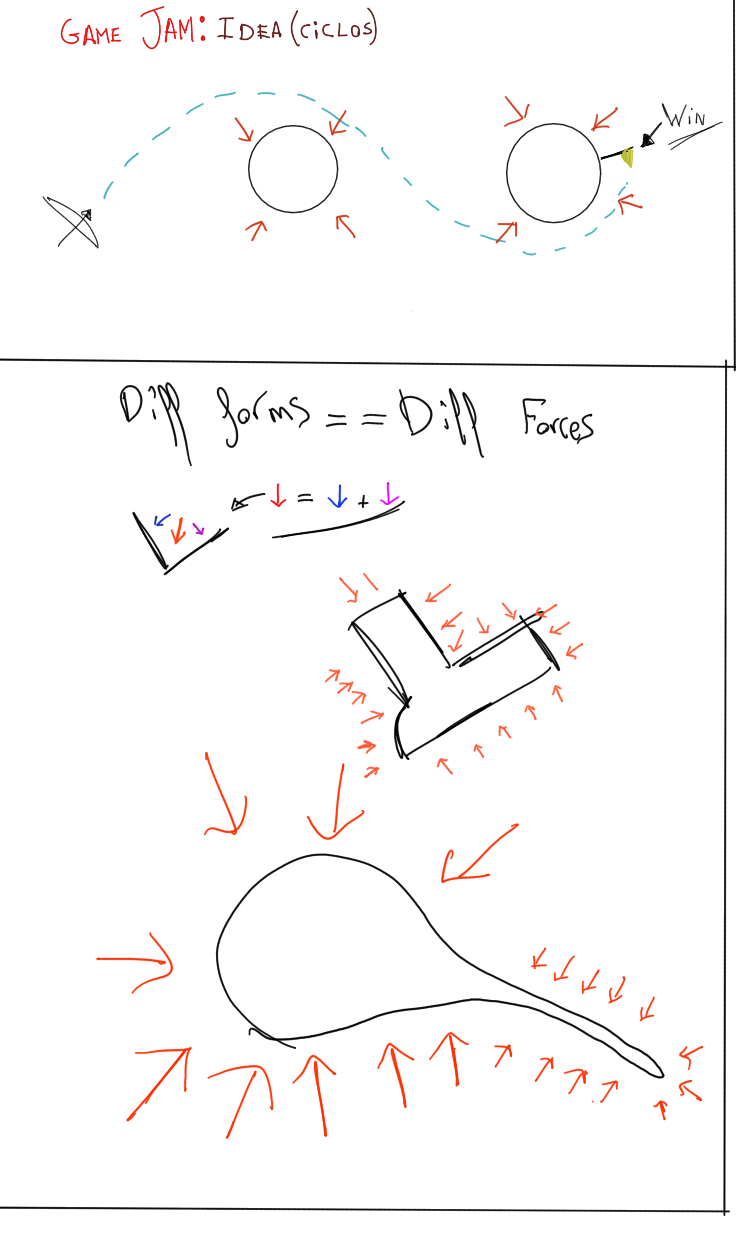 GAME JAM: IDEA (CiCLOS)
Win
Diff forms == Diff Forces
= +